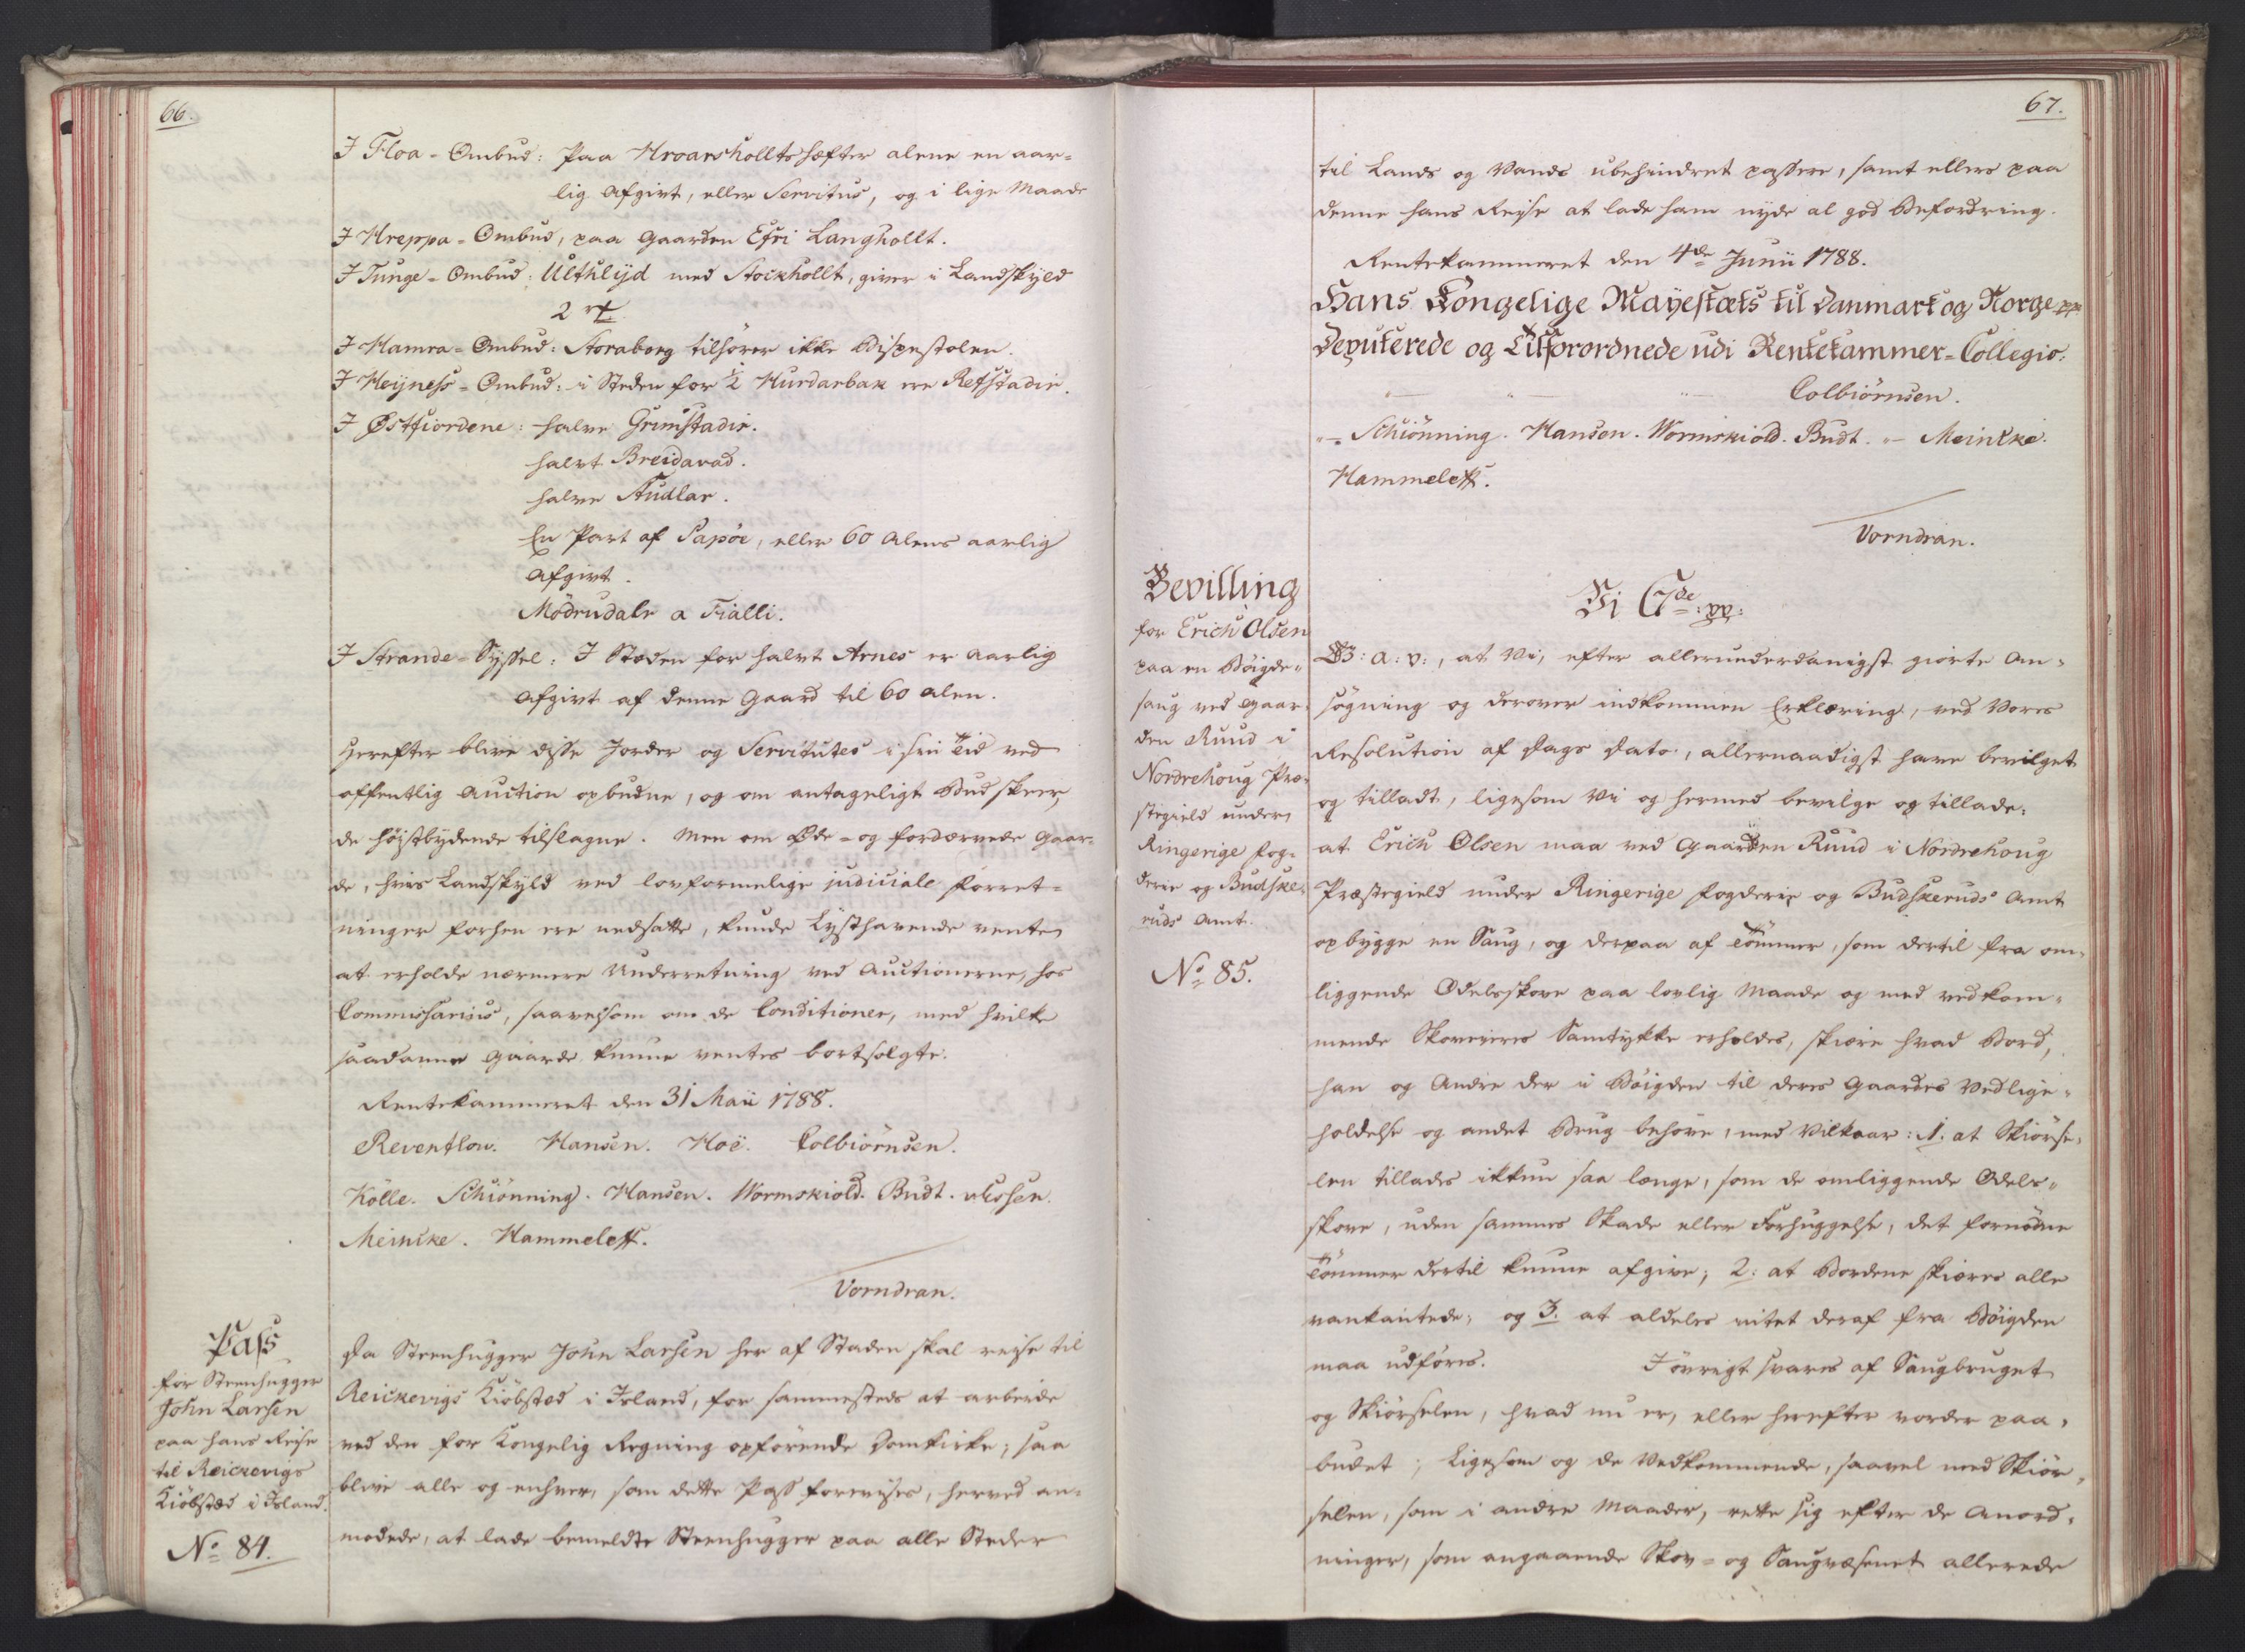 66.
I Floa-Ombud: Paa Hroarshollts hefter alene en aar-
lig Afgivt, eller Servitus, og i lige Maade
I Hreppa-Ombud, paa Gaarden Efri Langhollt.
I Tunge-Ombud: Ulthlyd med Stockhollt, giver i Landskyld
2 rt.
I Hamra-Ombud: Storaborg tilhører ikke Bispestolen.
I Heyness-Ombud: i Steden for ½ Hurdarbak ere Refstadir.
I Østfiordene: halve Grimstadir.
halvt Breidavad.
halve Studlar.
En Part af Papöe, eller 60 Alens aarlig
Afgivt.
Mödrudale a Fialli.
I Strande-Syssel: I Steden for halvt Arnes er aarlig
Afgivt af denne Gaard til 60 Alen.
Herefter blive disse Jorder og Servitutes i sin Tid ved
offentlig Auction opbudne, og om antageligt Bud skeer,
de höistbydende tilslagne. Men om Øde- og fordærvede Gaar-
de, hvis Landskyld ved lovformelige judiciale Forret-
ninger forhen ere nedsatte, kunde Lysthavende vente
at erholde nærmere Underretning ved Auctionerne, hos
Commissarius, saavelsom om de Conditioner, med hvilke
saadanne Gaarde kunne ventes bortsolgte.
Rentekammeret den 31 Maii 1788.
Reventlow. Hansen. Hoë. Colbiörnsen.
Kölle. Schiönning. Hansen. Wormskiold. Budt. Jessen.
Meincke. Hammeleff.
Vorndran.
Pass
for Steenhugger
John Larsen
paa hans Reise
til Reickevigs
Kiöbsted i Island.
No 84.
Da Steenhugger John Larsen her af Staden skal reise til
Reickevigs Kiöbsted i Island, for sammesteds at arbeide
ved den for Kongelig Regning opförende Domkirke; saa
blive alle og enhver, som dette Pass forevises, herved an-
modede, at lade bemeldte Steenhugger paa alle Steder
67.
til Lands og Vands ubehindret passere, samt ellers paa
denne hans Reise at lade ham nyde al god Befordring.
Rentekammeret den 4de Junii 1788.
Hans Kongelige Mayestæts til Danmark og Norge pp
Deputerede og Tilforordnede udi Rentekammer-Collegio.
Colbiörnsen.
Schiönning. Hansen. Wormskiold. Budt. Meincke.
Hammeleff.
Vorndran.
Bevilling
for Erich Olsen
paa en Böigde-
saug ved Gaar-
den Ruud i
Nordrehoug Præ-
stegield under
Ringerige Fog-
derie og Budske-
ruds Amt.
No 85.
Vi C 7de: pp:
G: a: v:, at Vi, efter allerunderdanigst giorte An-
sögning og derover indkommen Erklæring, ved Vores
Resolution af Dags Dato, allernaadigst have bevilget
og tilladt, ligesom Vi og hermed bevilge og tillade:
at Erich Olsen maa ved Gaarden Ruud i Nordrehoug
Præstegield under Ringerige Fogderie og Budskeruds Amt
opbygge en Saug, og derpaa af Tömmer, som dertil fra om-
liggende Odelsskove paa lovlig Maade og med vedkom-
mende Skoveieres Samtykke erholdes, skiære hvad Bord,
han og Andre der i Böigden til deres Gaardes Vedlige-
holdelse og andet Brug behöve, med Vilkaar: 1. at Skiörse-
len tillades ikkun saa længe, som de omliggende Odels-
skove, uden sammes Skade eller Forhuggelse, det fornödne
Tömmer dertil kunne afgive; 2. at Bordene skiæres alle
vankantede; og 3. at aldeles intet deraf fra Böigden
maa udföres. I övrigt svares af Saugbruget
og Skiörselen, hvad nu er, eller herefter vorder paa-
budet; Ligesom og de Vedkommende, saavel med Skiör-
selen, som i andre Maader, rette sig efter de Anord-
ninger, som angaaende Skov- og Saugvæsenet allerede